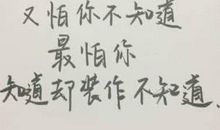 又怕你不知道
最怕你
知道却装作不知道.